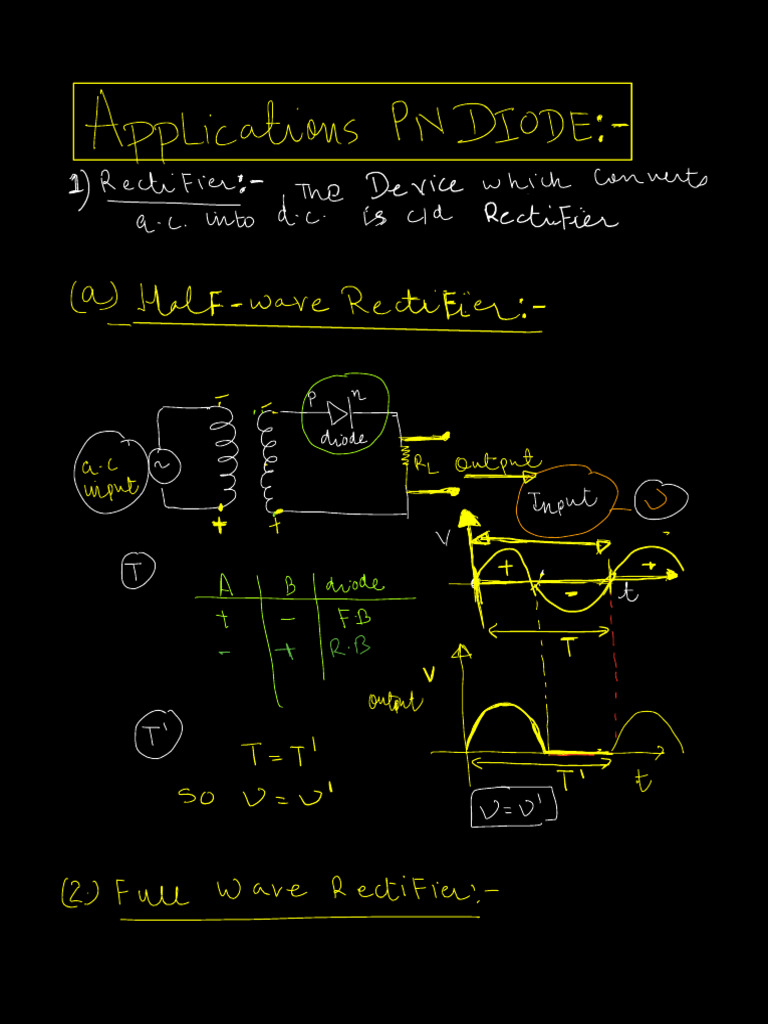 Applications PN DIODE:-
1) Rectifier:- The Device which converts
a.c. into d.c. is c/d Rectifier
(a) Half-wave Rectifier:-
- - P n
diode
a.c
input
~
RL output
+ +
Input ν
V
+ - +
t
T
T
A B diode
+ - F.B
- + R.B
V
output
T'
T = T'
so ν = ν'
T' t
ν = ν'
(2.) Full Wave Rectifier:-